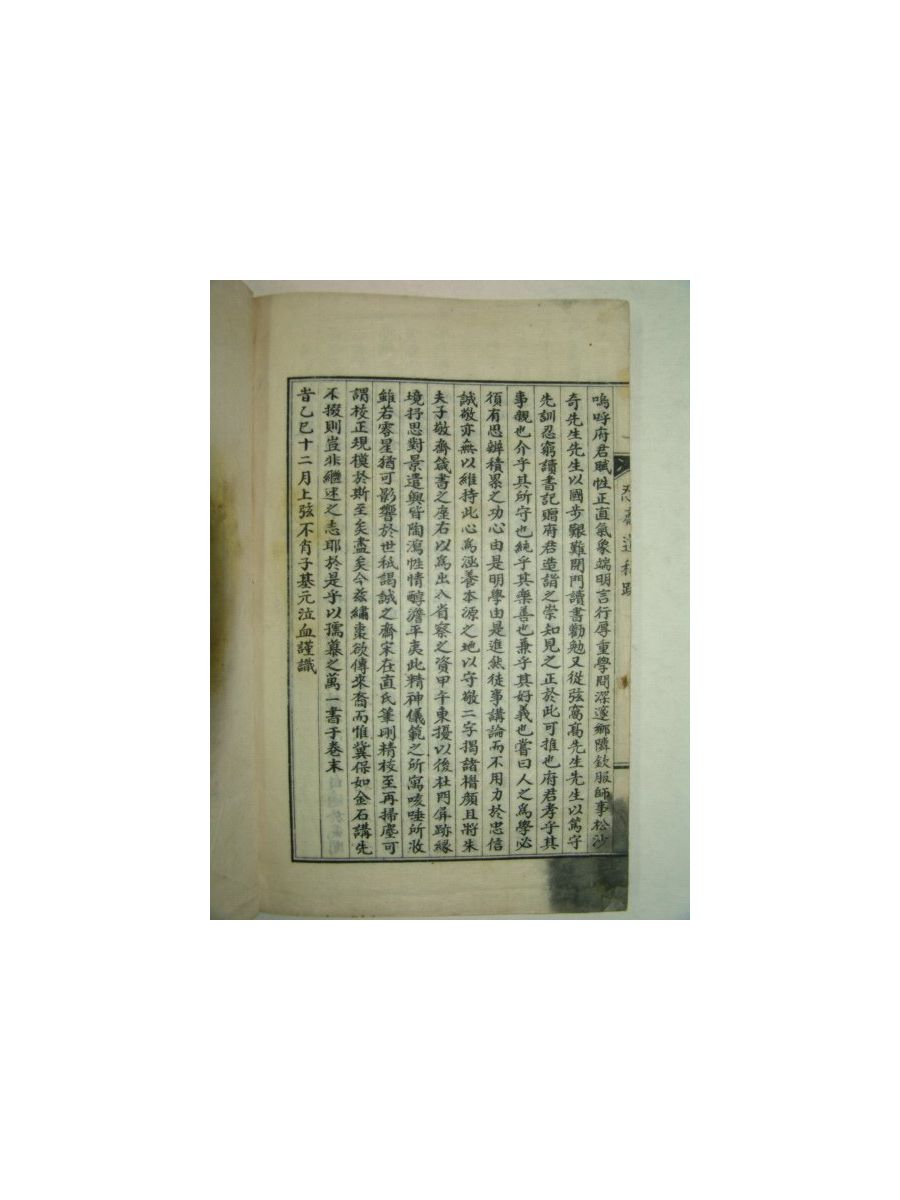 嗚呼府君賦性正直氣象端明言行厚重學問深邃鄉隣欽服師事松沙
奇先生先生以國步艱難閉門讀書勸勉又從弦窩高先生先生以篤守
先訓忍窮讀書記贈府君造詣之崇知見之正於此可推也府君孝乎其
事親也介乎其所守也純乎其樂善也兼乎其好義也嘗曰人之爲學必
須有思辨積累之功心由是明學由是進然徒事講論而不用力於忠信
誠敬亦無以維持此心爲涵養本源之地以守敬二字揭諸楣顔且將朱
夫子敬齋箴書之座右以爲出入省察之資甲午東擾以後杜門屛跡緣
境抒思對景遣興皆陶瀉性情醇澹平夷此精神儀範之所寓咳唾所收
雖若零星猶可影響於世秪謁誠之齋宋在直氏筆刪精核至再掃塵可
謂校正規模於斯至矣盡矣今玆繡棗欲傳來裔而惟冀保如金石講先
不掇則豈非繼述之志耶於是乎以孺慕之萬一書于卷末
旹乙巳十二月上弦不肖子基元泣血謹識
忍齋遺稿跋